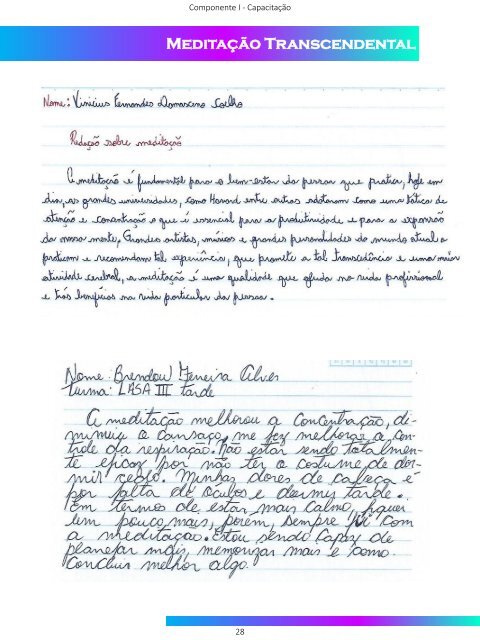 Componente I - Capacitação
Meditação Transcendental
Nome: Vinícius Fernandes Damasceno Coelho
Redação sobre meditação
A meditação é fundamental para o bem-estar da pessoa que pratica, hoje em
dia, as grandes universidades, como Harvard entre outras adotaram como uma tática de
atenção e concentração o que é essencial para a produtividade e para a expansão
da nossa mente. Grandes artistas, músicos e grandes personalidades do mundo atual a
praticam e recomendam tal experiência, que promete a tal transcedência e uma maior
atividade cerebral, a meditação é uma qualidade que ajuda na vida profissional
e trás benefícios na vida particular da pessoa.
Nome: Brendow Ferreira Alves
turma: LASA III tarde
A meditação melhorou a concentração, di-
minuiu o cansaço, me fez melhorar o con-
trole da respiração. Não estar sendo totalmen-
te eficaz por não ter o costume de dor-
mir cedo. Minhas dores de cabeça é
por falta de óculos e dormir tarde.
Em termos de estar mais calmo, fiquei
um pouco mais, porem, sempre fui com
a meditação. Estou sendo capaz de
planejar mais, memorizar mais e como
concluir melhor algo.
28